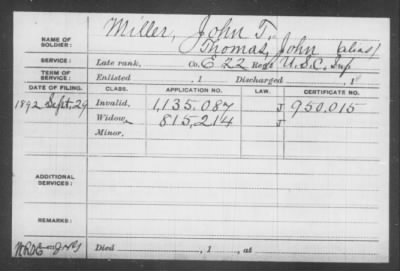 NAME OF SOLDIER: Miller, John T.
Thomas, John (alias)
SERVICE: Late rank, Co. E 22 Regt U.S.C. Inf
TERM OF SERVICE: Enlisted , 1 Discharged , 1
DATE OF FILING. CLASS. APPLICATION NO. LAW. CERTIFICATE NO.
1892 Sept. 29 Invalid, 1,135.087 J 950,015
Widow, 815,214 J
Minor,
ADDITIONAL SERVICES:
REMARKS:
Died , 1 , at